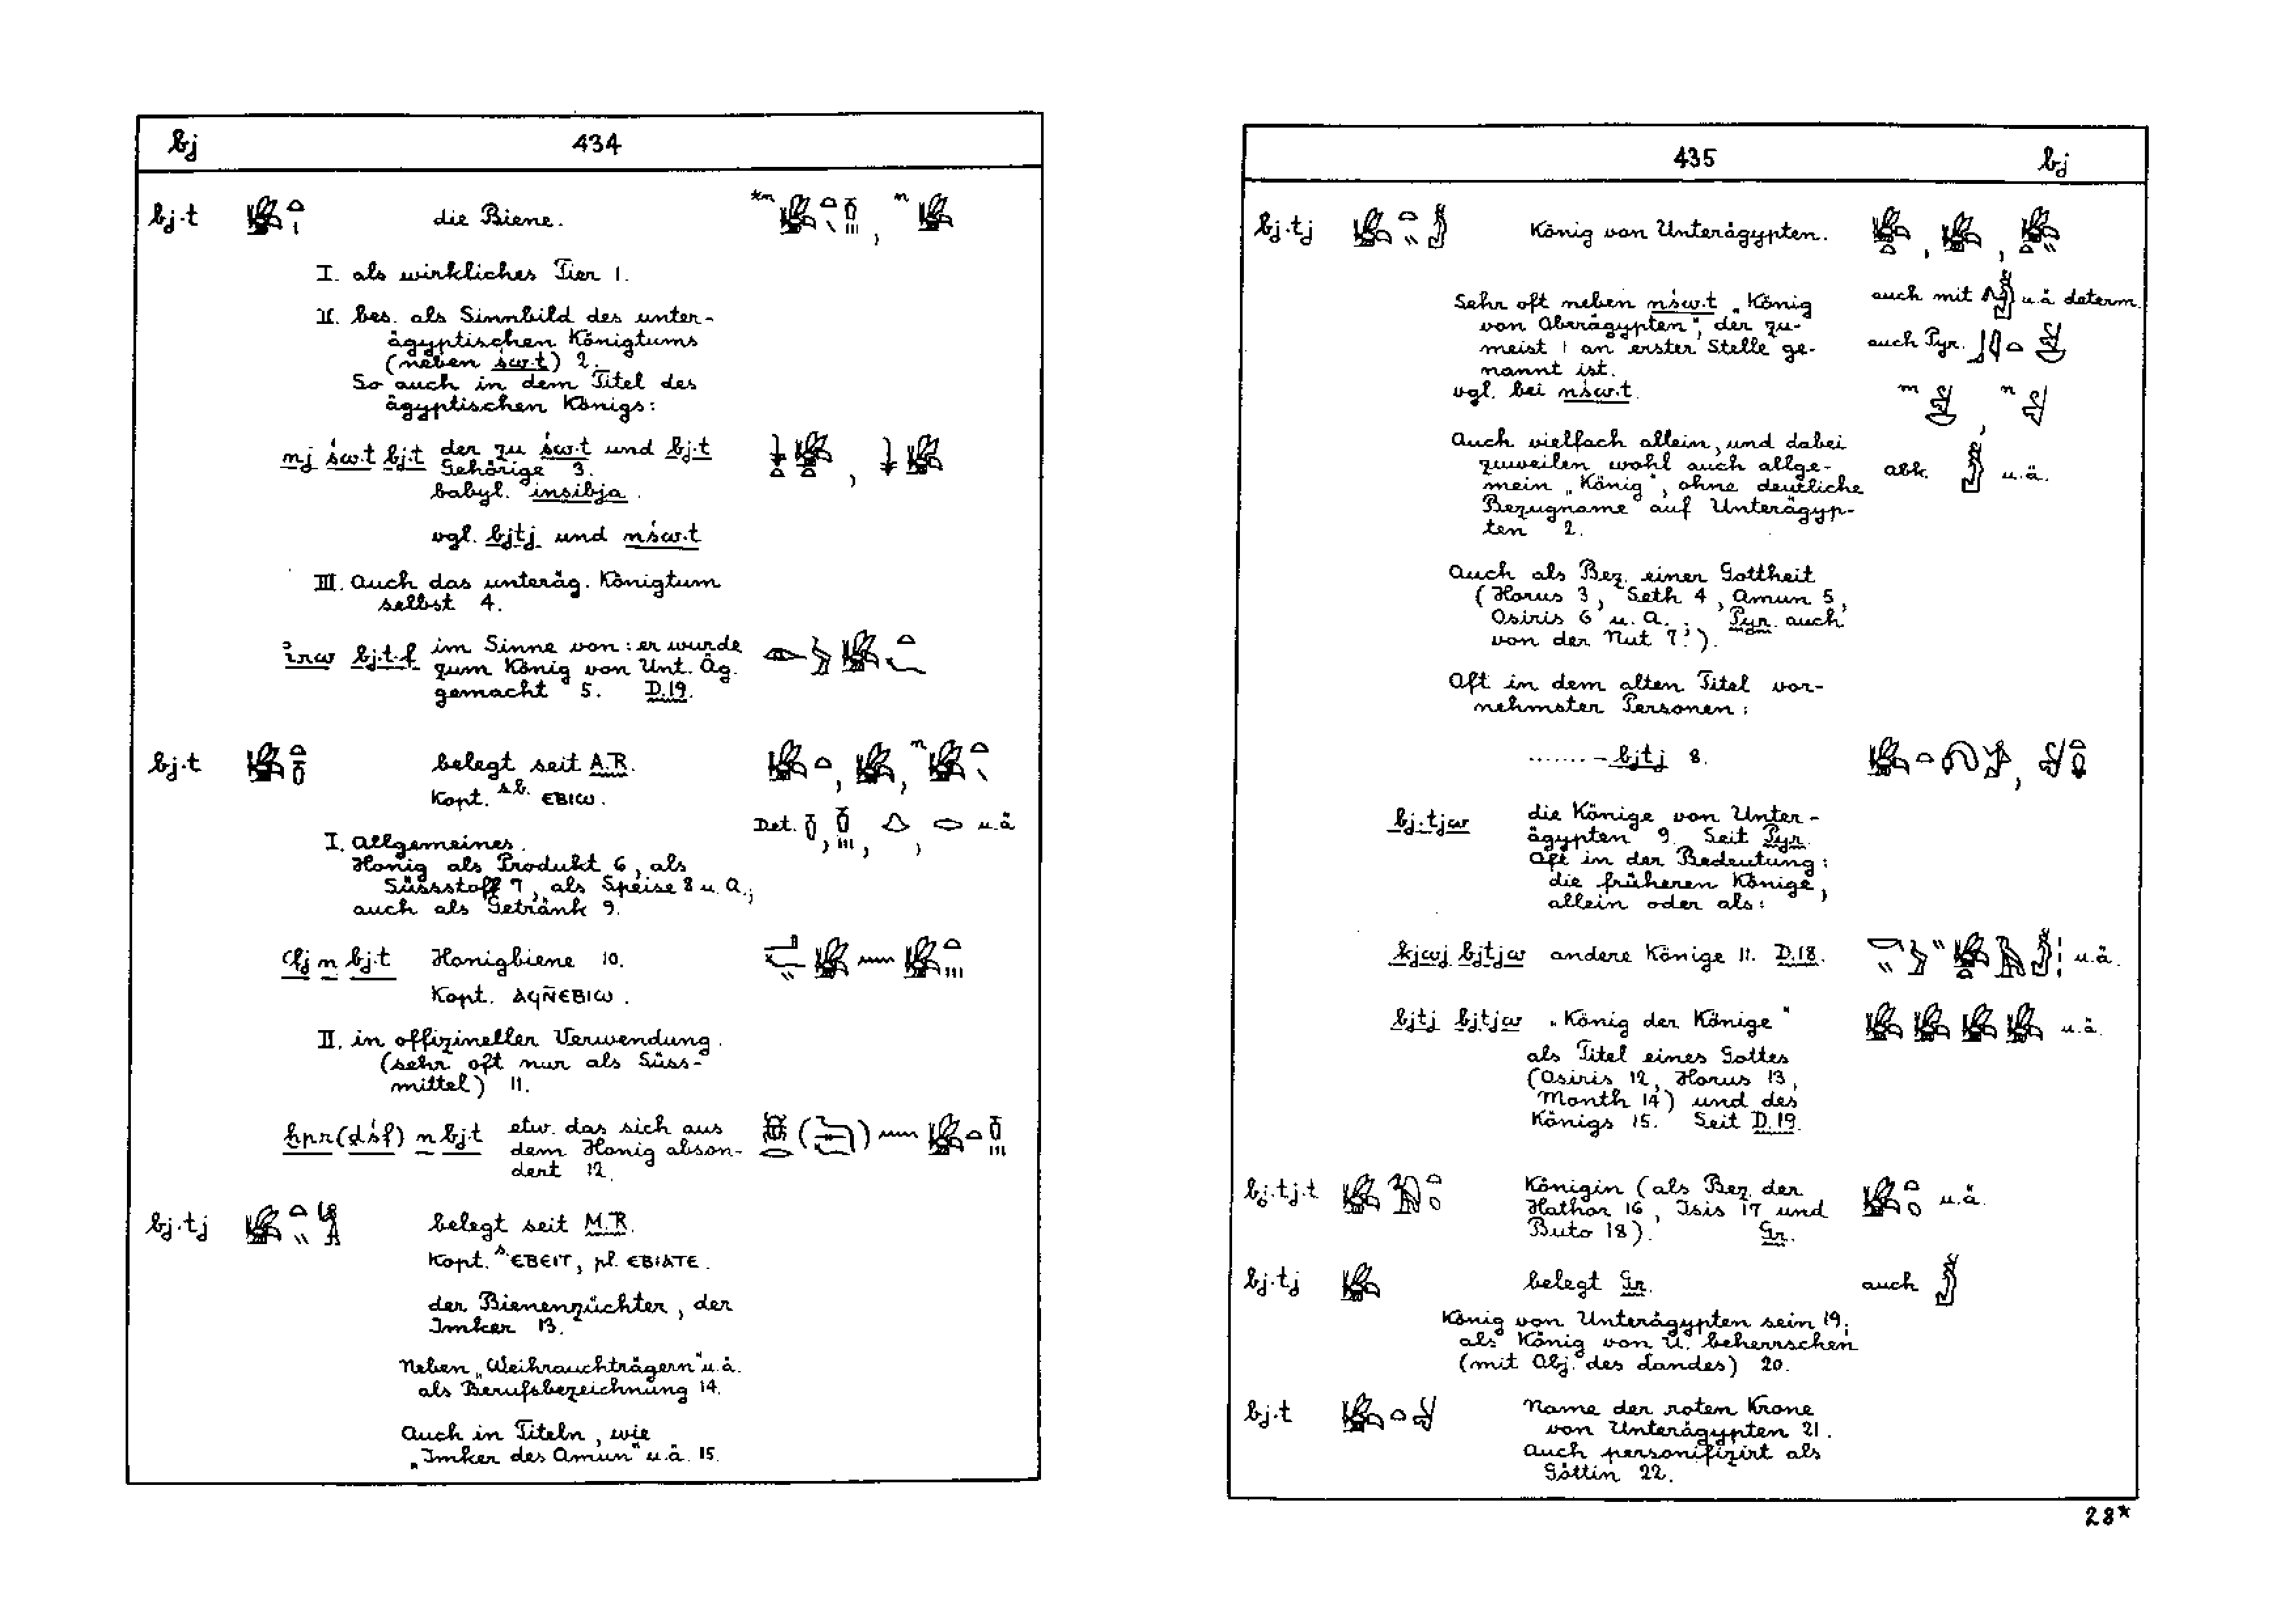 bj
434
bj·t die Biene.
I. als wirkliches Tier 1.
II. bes. als Sinnbild des unter-
ägyptischen Königtums
(neben św·t) 2.
So auch in dem Titel des
ägyptischen Königs:
nj św·t bj·t der zu św·t und bj·t
Gehörige 3.
babyl. insibja.
vgl. bjtj und nśw·t
III. Auch das unteräg. Königtum
selbst 4.
irw bj·t·f im Sinne von: er wurde
zum König von Unt. Äg.
gemacht 5. D.19.
bj·t belegt seit A.R.
Kopt. s.b. ⲉⲃⲓⲱ.
Det. u.ä
I. Allgemeines.
Honig als Produkt 6, als
Süssstoff 7, als Speise 8 u. A.;
auch als Getränk 9.
ꜥfj n bj·t Honigbiene 10.
Kopt. ⲁϥⲛ̄ⲉⲃⲓⲱ.
II. in offizineller Verwendung.
(sehr oft nur als Süss-
mittel) 11.
ḫpr (ḏśf) n bj·t etw. das sich aus
dem Honig abson-
dert 12.
bj·tj belegt seit M.R.
Kopt. s. ⲉⲃⲉⲓⲧ, pl. ⲉⲃⲓⲁⲧⲉ.
der Bienenzüchter, der
Imker 13.
Neben „Weihrauchträgern" u.ä.
als Berufsbezeichnung 14.
Auch in Titeln, wie
„Imker des Amun" u.ä. 15.
435
bj
bj·tj König von Unterägypten.
Sehr oft neben nśw·t „König
von Oberägypten", der zu-
meist 1 an erster Stelle ge-
nannt ist.
vgl. bei nśw·t.
auch mit u.ä determ.
auch Pyr.
abk. u.ä.
Auch vielfach allein, und dabei
zuweilen wohl auch allge-
mein „König", ohne deutliche
Bezugname auf Unterägyp-
ten 2.
Auch als Bez. einer Gottheit
(Horus 3, Seth 4, Amun 5,
Osiris 6 u. A.; Pyr. auch
von der Nut 7).
Oft in dem alten Titel vor-
nehmster Personen:
....... - bjtj 8.
bj·tjw die Könige von Unter-
ägypten 9. Seit Pyr.
Oft in der Bedeutung:
die früheren Könige,
allein oder als:
kjwj bjtjw andere Könige 11. D.18. u.ä.
bjtj bjtjw „König der Könige" u.ä.
als Titel eines Gottes
(Osiris 12, Horus 13,
Month 14) und des
Königs 15. Seit D.19.
bj·tj·t Königin (als Bez. der u.ä.
Hathor 16, Isis 17 und
Buto 18). Gr.
bj·tj belegt Gr. auch
König von Unterägypten sein 19;
als König von U. beherrschen
(mit Obj. des Landes) 20.
bj·t Name der roten Krone
von Unterägypten 21.
Auch personifizirt als
Göttin 22.
28*